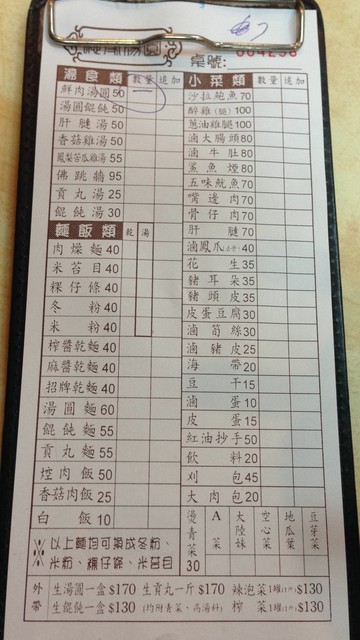 桌號:
湯食類 數量 追加
鮮肉湯圓50 一
湯圓餛飩50
肝腱湯50
香菇雞湯50
鳳梨苦瓜雞湯55
佛跳牆95
貢丸湯25
餛飩湯30
麵飯類 乾 湯
肉燥麵40
米苔目40
粿仔條40
冬粉40
米粉40
榨醬乾麵40
麻醬乾麵40
招牌乾麵40
湯圓麵60
餛飩麵55
貢丸麵55
焢肉飯50
香菇肉飯25
白飯10
※以上麵均可換成冬粉、
米粉、粿仔條、米苔目
小菜類 數量 追加
沙拉鮑魚70
醉雞(腿)100
蔥油雞腿100
滷大腸頭80
滷牛肚80
鯊魚煙80
五味魷魚70
嘴邊肉70
骨仔肉70
肝腱70
滷鳳爪40
花生35
豬耳朵35
豬頭皮35
皮蛋豆腐30
滷筍絲30
滷豬皮25
海帶20
豆干15
滷蛋10
皮蛋15
紅油抄手50
飲料20
刈包45
大肉包20
燙青菜30
A菜
大陸妹
空心菜
地瓜葉
豆芽菜
外帶
生湯圓一盒$170 生貢丸一斤$170 辣泡菜1罐(1斤)$130
生餛飩一盒$130 (均附青菜、高湯料) 榨菜1罐(1斤)$130